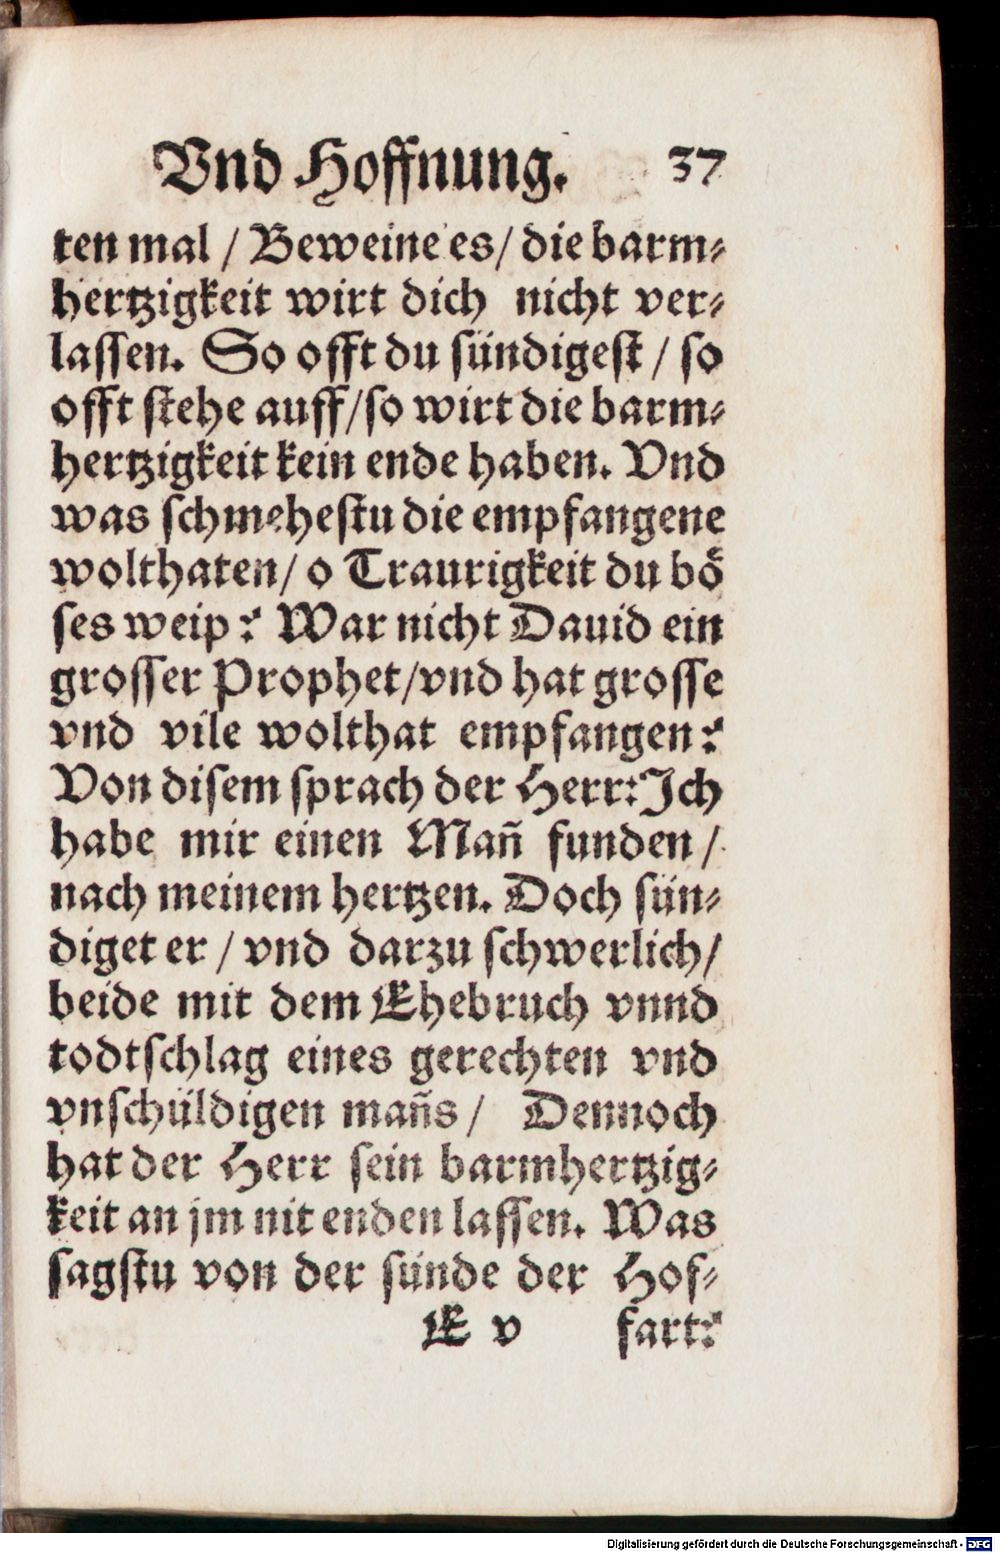 Vnd Hoffnung. 37
ten mal / Beweine es / die barm⸗
hertzigkeit wirt dich nicht ver⸗
lassen. So offt du sündigest / so
offt stehe auff / so wirt die barm⸗
hertzigkeit kein ende haben. Vnd
was schmehestu die empfangene
wolthaten / o Traurigkeit du boͤ
ses weip? War nicht Dauid ein
grosser Prophet / vnd hat grosse
vnd vile wolthat empfangen?
Von disem sprach der Herr: Ich
habe mir einen Mañ funden /
nach meinem hertzen. Doch sün⸗
diget er / vnd darzu schwerlich /
beide mit dem Ehebruch vnnd
todtschlag eines gerechten vnd
vnschüldigen mañs / Dennoch
hat der Herr sein barmhertzig⸗
keit an jm nit enden lassen. Was
sagstu von der sünde der Hof⸗
E v fart?
Digitalisierung gefördert durch die Deutsche Forschungsgemeinschaft - DFG